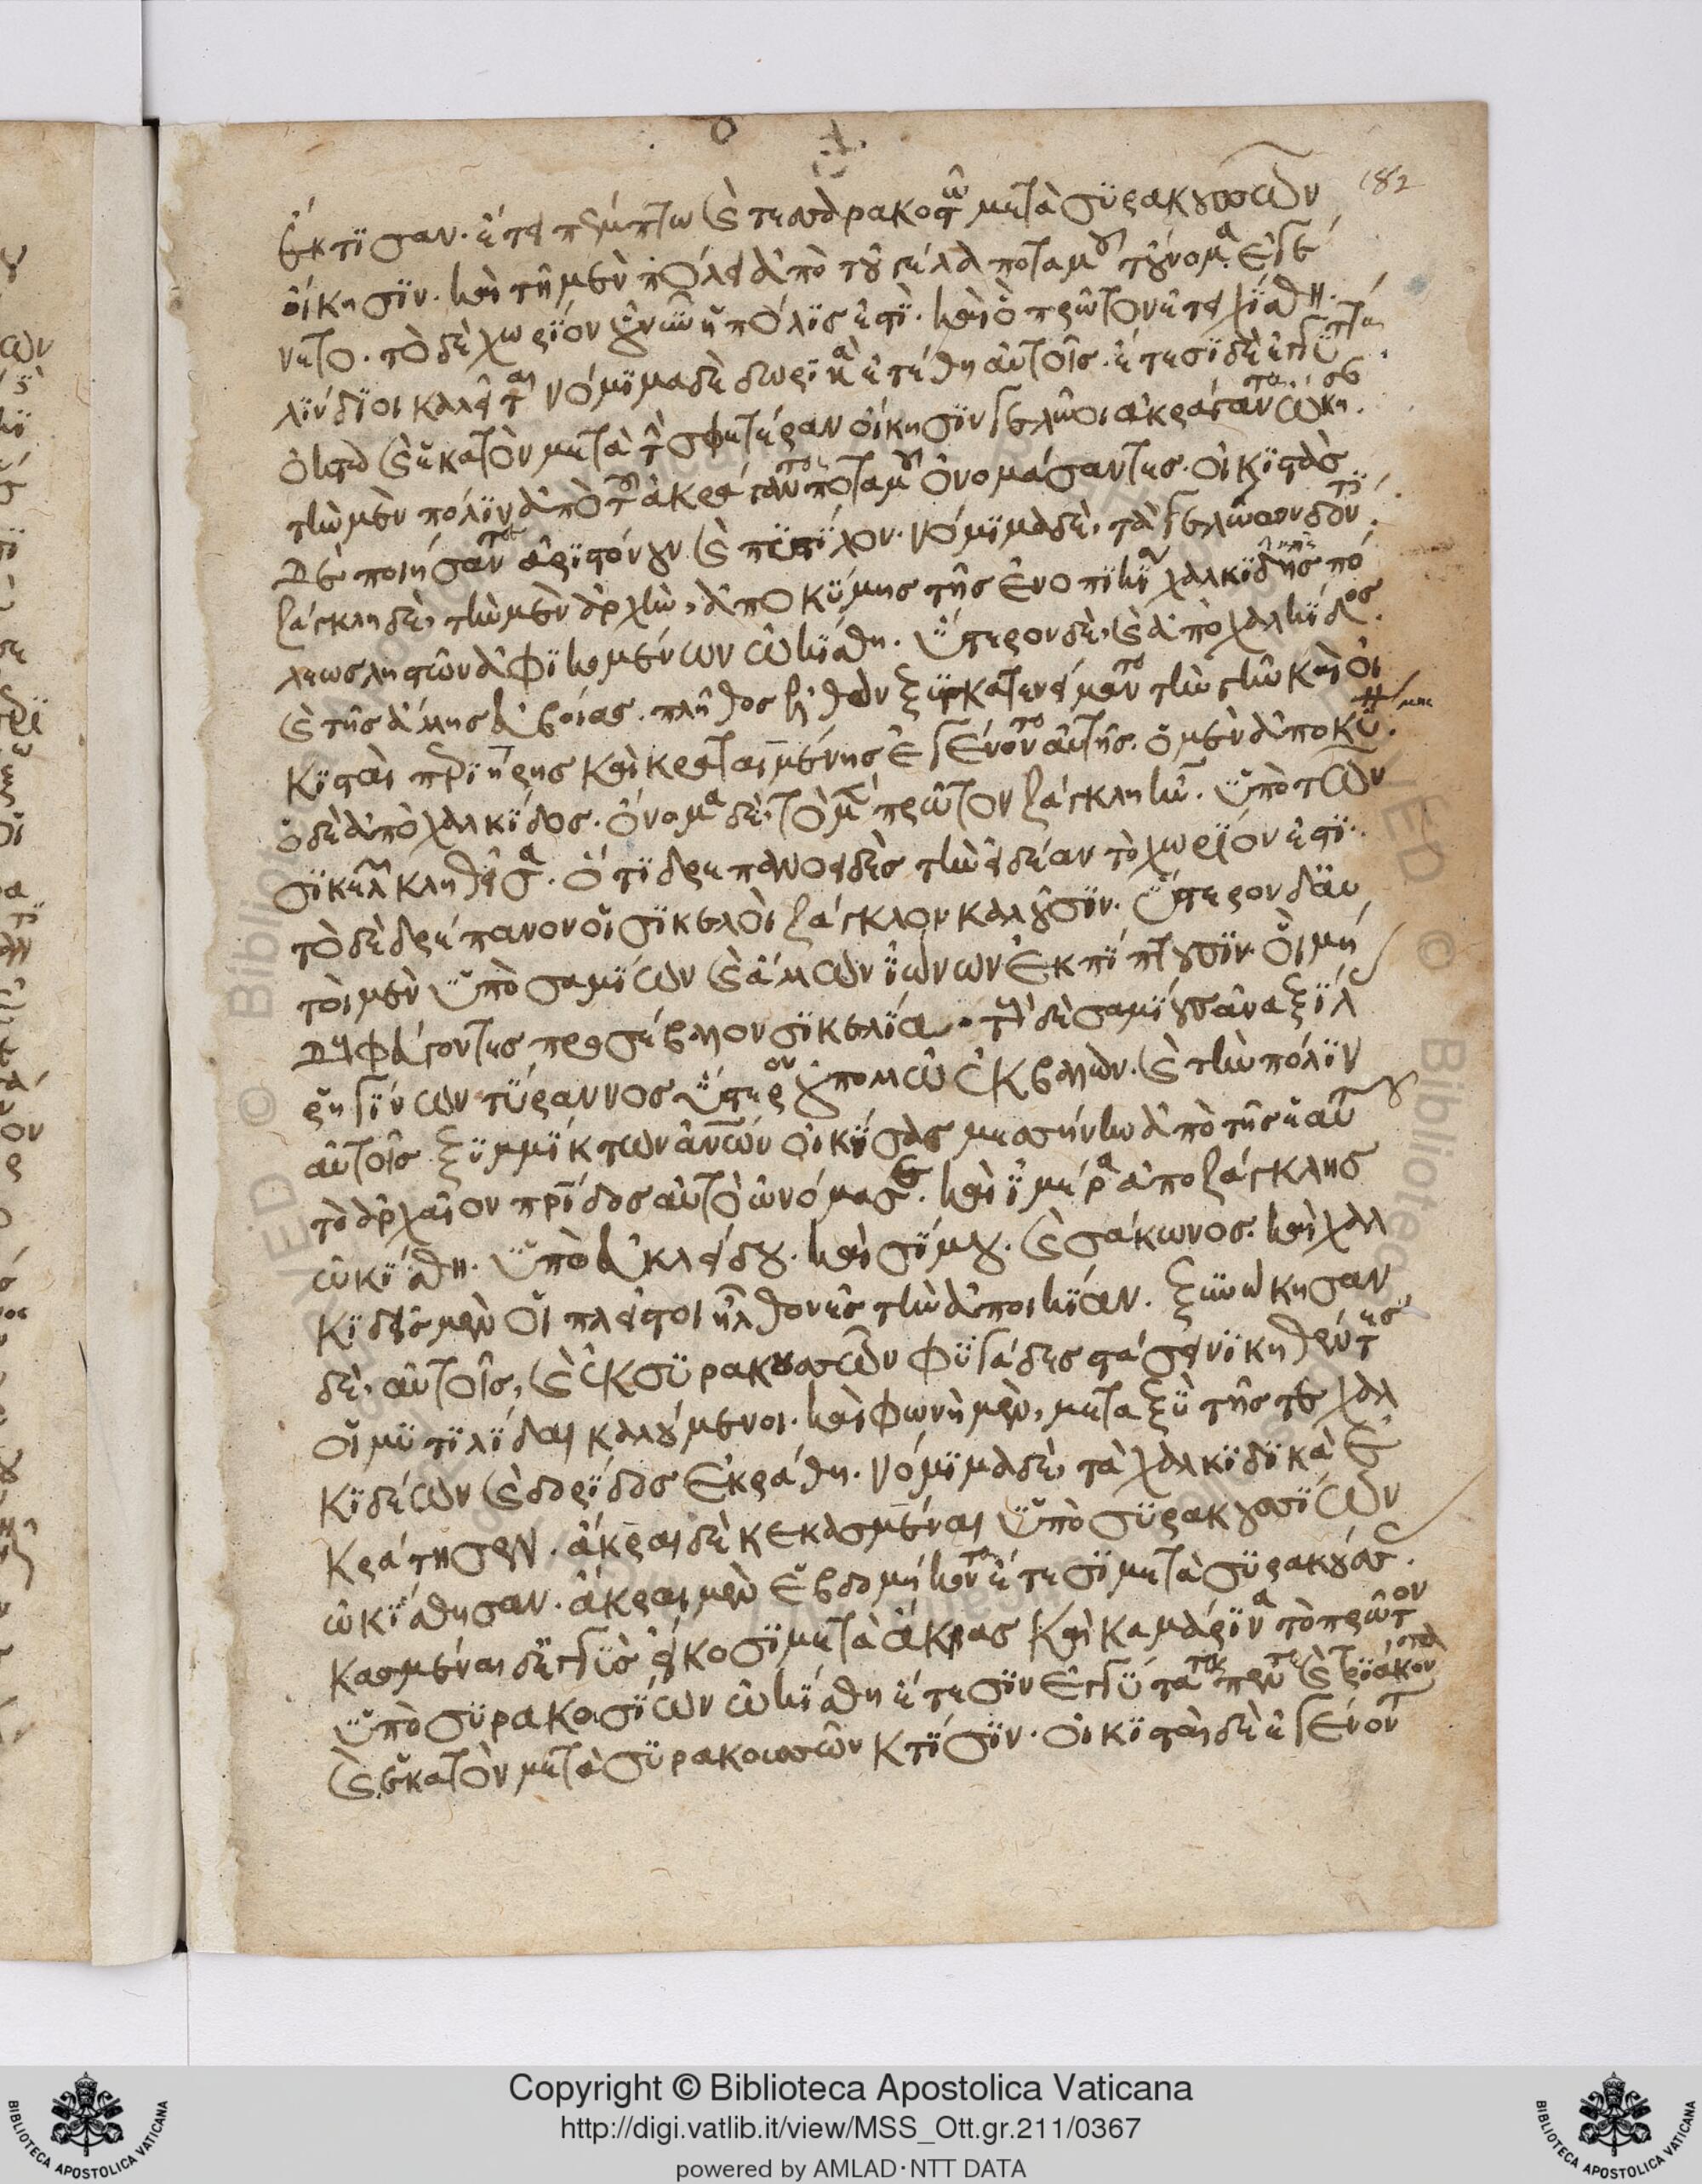 ἔκτϊσαν. ἔτει πέμπτω καὶ τεσσαρακοστῶ μετὰ σϋρακουσσῶν
οἴκησϊν. καὶ τῆ μὲν πόλει ἀπὸ τοῦ γέλα ποταμοῦ τοὔνομα ἐγέ
νετο. τὸ δὲ χωρϊον οὗ νῦν ἡ πόλϊς ἐστϊ. καὶ ὃ πρῶτον ἐτειχίσθη.
λϊνδϊοι καλεῖται νόμϊμα δὲ δωρϊκὰ ἐτέθη αὐτοῖς. ἔτεσϊ δὲ ἐγγϋτατα
ὀκτὼ καὶ ἑκατὸν μετὰ τὴν σφετέραν οἴκησϊν γελῶοι ἀκράγαντα ὤκησαν
τὴν μὲν πόλϊν ἀπὸ τοῦ ἀκράγαντος ποταμοῦ ὀνομάσαντες. οἰκϊστὰς
δὲ ποιήσαντες ἀρϊστόνουν καὶ πϊστϊλον. νόμϊμα δὲ, τὰ γελώων δόντες.
ζάγκλη δὲ, τὴν μὲν ἀρχὴν, ἀπὸ κϋμης τῆς ἐν ὀπϊκία χαλκϊδικῆς πό
λεως ληστῶν ἀφϊκομένων ὠκίσθη. ὕστερον δὲ, καὶ ἀπὸ χαλκίδος
καὶ τῆς ἄλλης εὐβοίας. πλῆθος ἐλθὸν ξϋγκατενείμαντο τὴν γῆν καὶ οἰ
κϊσταὶ πριήρης καὶ κραταιμένης ἐγένοντο αὐτῆς. ὁ μὲν ἀπο κϋ
μης
ὁ δὲ ἀπὸ χαλκϊδος. ὄνομα δὲ, τὸ μὲν πρῶτον ζάγκλη ἦν. ὑπὸ τῶν
σϊκελῶν κληθεῖσα. ὅτϊ δρεπανοειδὲς τὴν ἰδέαν τὸ χωρϊον ἐστϊ.
τὸ δὲ δρέπανον οἱ σϊκελοὶ ζάγκλον καλοῦσϊν. ὕστερον δ᾽ αὐ
τοὶ μὲν ὑπὸ σαμϊων καὶ ἄλλων ϊώνων ἐκπϊπτουσϊν. οἳ μή
δους φεύγοντες προσέβαλον σϊκελία. τοὺς δὲ σαμϊους ἀναξϊλ
ρηγϊνων τϋραννος ὕστερον οὐ πολλῶ ἐκβαλὼν. καὶ τὴν πόλϊν
αὐτοῖς ξϋμμϊκτων ἀνων οἰκϊσας μεσσήνην ἀπὸ τῆς ἑαυτοῦ
τὸ ἀρχαῖον πρίδος αὐτὸ ὠνόμασε. καὶ ϊμέρα ἀπο ζάγκλης
ὠκίσθη. ὑπὸ εὐκλείδου. καὶ σίμου. καὶ σάκωνος. καὶ χαλ
κϊδεῖς μὲν οἱ πλεῖστοι ἦλθον ἐς τὴν ἀποικϊαν. ξϋνώκησαν
δὲ, αὐτοῖς, καὶ ἐκ σϋρακουσσῶν φϋγάδες στάσει νϊκηθέντες
οἱ μϋτϊλϊδαι καλούμενοι. καὶ φωνὴ μὲν, μεταξὺ τῆς τε χαλ
κϊδέων καὶ δορίδος ἐκράθη. νόμϊμα δὲ, τὰ χαλκϊδϊκὰ ἐ
κράτησεν. ἄκραι δὲ κεκασμέναι ὑπὸ σϋρακουσϊων
ὠκίσθησαν. ἄκραι μὲν ἑβδομήκοντα ἔτεσϊ μετὰ σϋρακούσας.
κασμέναι δ᾽ ἐγγϋς εἴκοσϊ μετὰ ἄκρας καὶ καμάρϊνα τὸ πρῶτον
ὑπὸ σϋρακοσϊων ὠκίσθη ἔτεσϊν ἐγγϋτατα πέντε καὶ τρϊάκοντα
καὶ ἑκατὸν μετὰ σϋρακουσσῶν κτϊσϊν. οἰκϊσταὶ δὲ ἐγένοντ
182
Copyright © Biblioteca Apostolica Vaticana
http://digi.vatlib.it/view/MSS_Ott.gr.211/0367
powered by AMLAD·NTT DATA
BIBLIOTECA APOSTOLICA VATICANA
BIBLIOTECA APOSTOLICA VATICANA